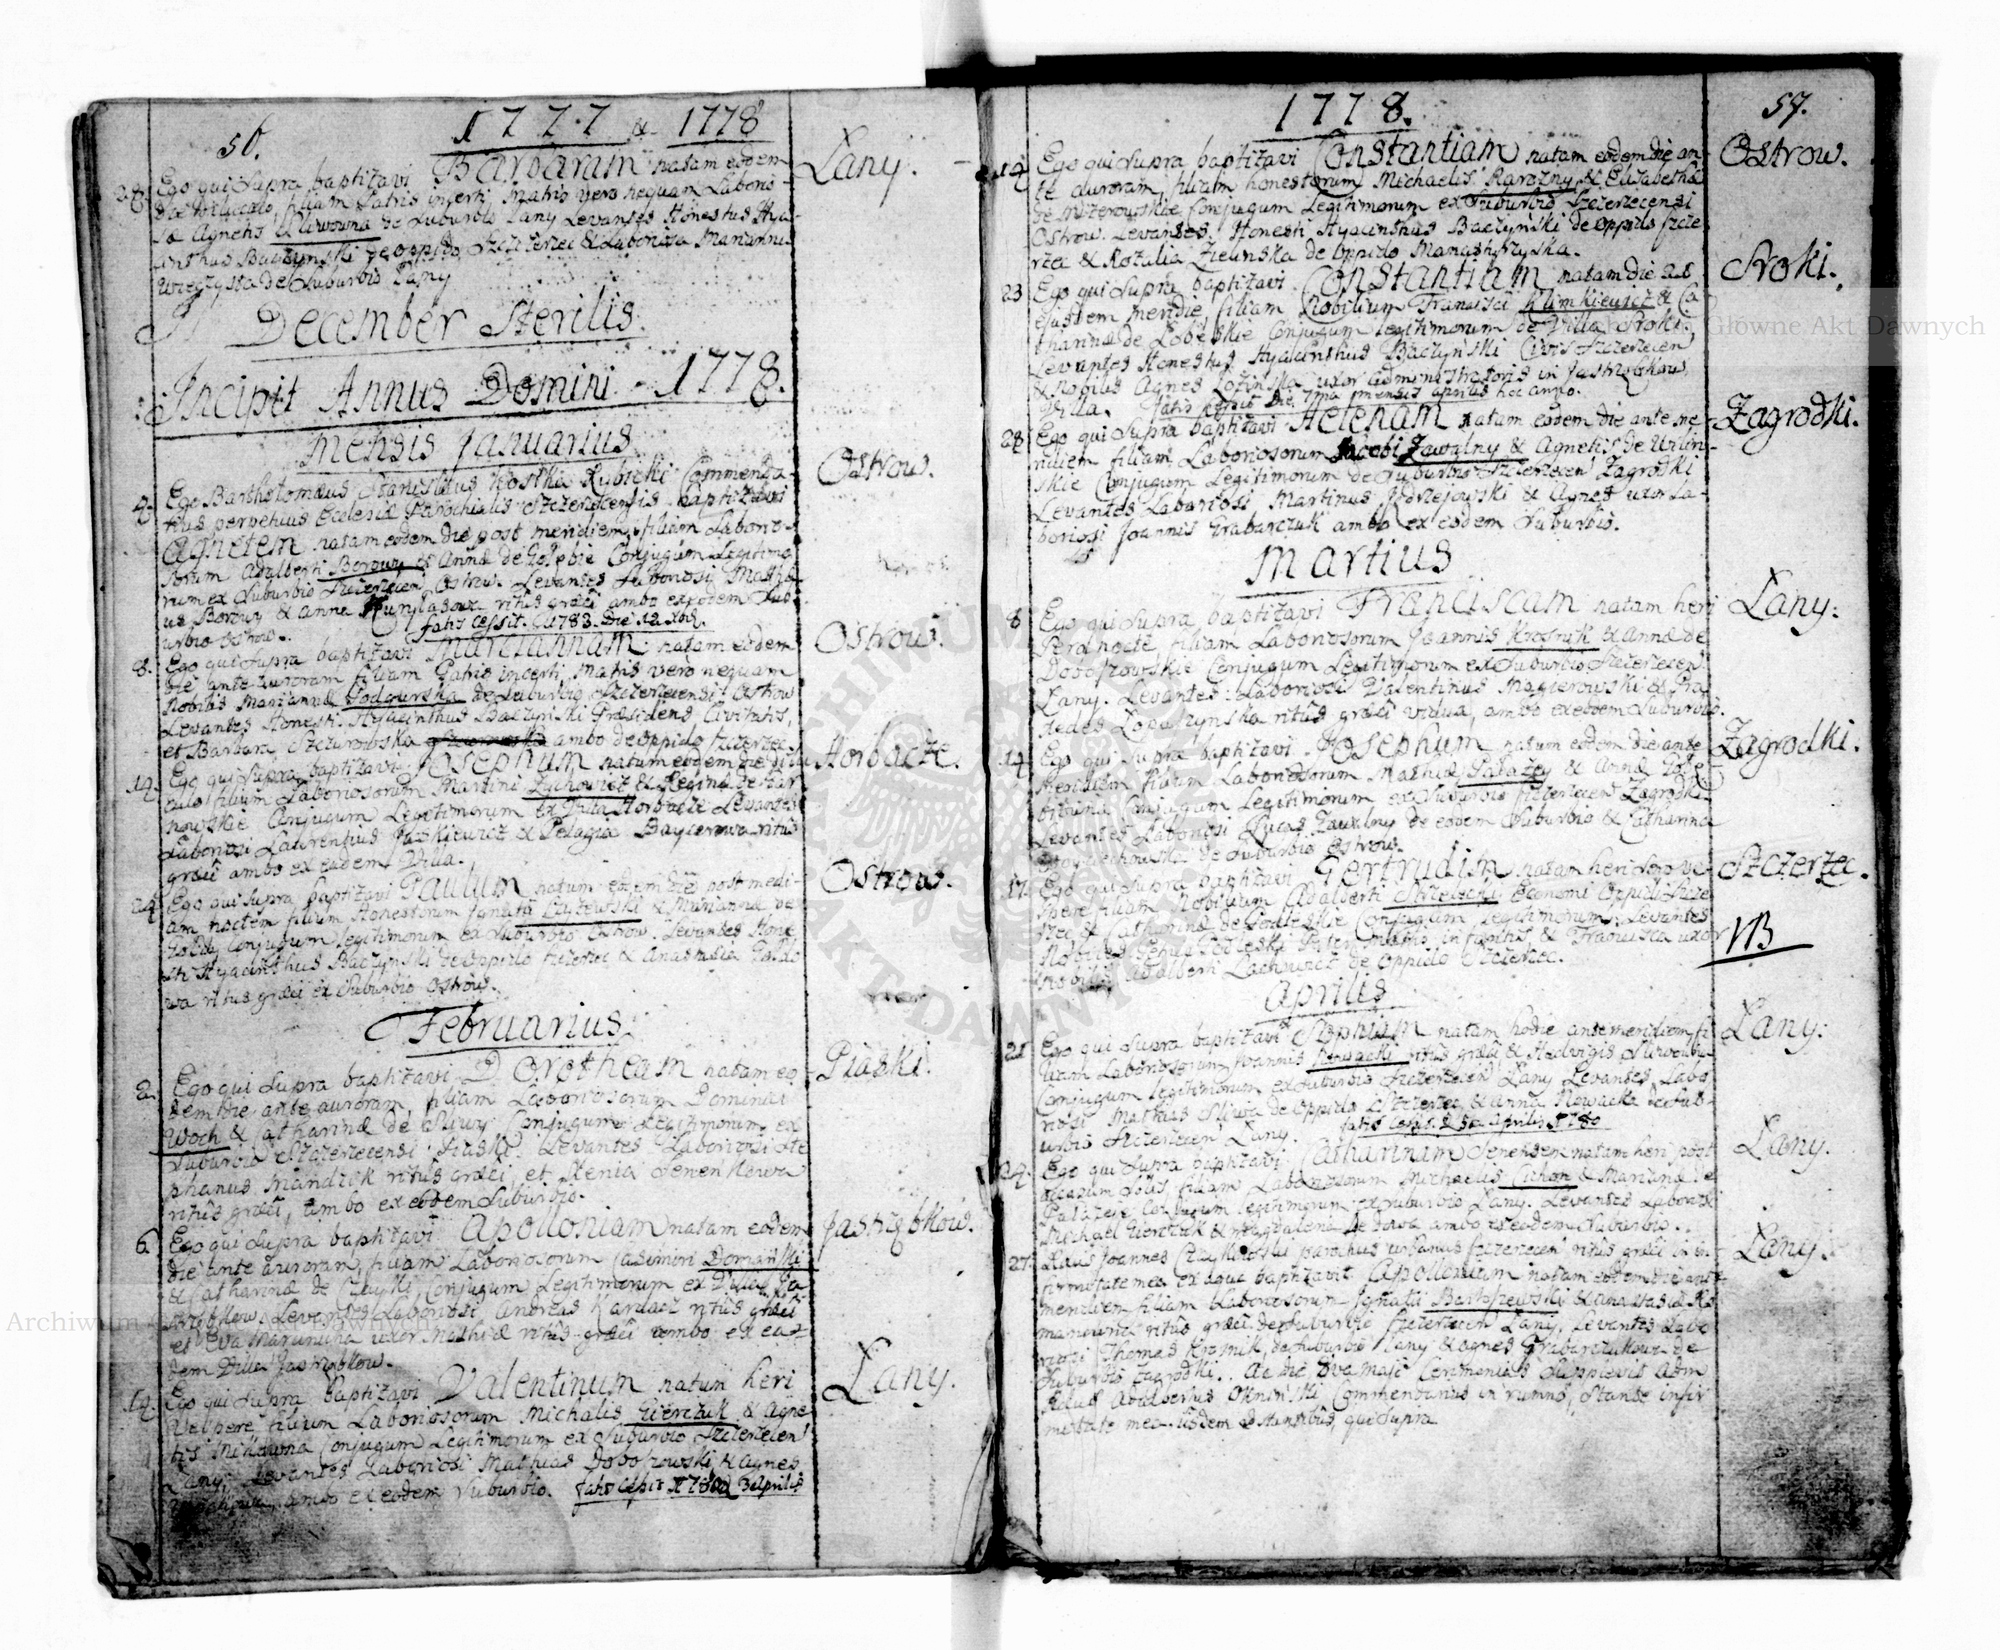 56.
1777 & 1778
28. Ego qui Supra baptizavi Barbaram natam eodem
die diluculo, filiam Patris incerti Matris vero nequam Laborio-
sæ Agnetis Sliwowna de Suburbio Łany Levantes Honestus Hya-
cinthus Baczynski de oppido Szczerzec & Laboriosa Marianna
de Suburbio Łany
Łany.
December Sterilis.
Incipit Annus Domini - 1778.
Mensis Januarius
4. Ego Bartholomæus Stanislaus Kostka Lubicki Commenda-
rius perpetuus Ecclesiæ Parochialis Szczerzecensis baptizavi
Agnetem natam eodem die post meridiem, filiam Laborio-
sorum Adalberti Borowy & Annæ de Gołębie Conjugum Legitimo-
rum ex Suburbio Szczerzecen Ostrow. Levantes Laboriosi Mathæ-
us Borowy & Anna ritus græci ambo ex eodem Sub-
urbio Ostrow. fatis cessit. 1783. Die 12 Xbr.
Ostrow.
8. Ego qui Supra baptizavi Mariannam natam eodem
die ante auroram filiam Patris incerti, Matris vero nequam
Nobilis Mariannæ Podgurska de Suburbio Szczerzecensi Ostrow
Levantes Honesti Hyacinthus Baczynski Præsidens Civitatis,
et Barbara Szczurowska ambo de oppido Szczerzec.
Ostrow.
14. Ego qui Supra baptizavi Josephum natum eodem die dilu
culo filium Laboriosorum Martini Zychowicz & Reginæ de Tar-
nowskie Conjugum Legitimorum ex Villa Horbacze Levantes
Laboriosi Laurentius Juzkiewicz & Pelagia Baylerowa ritus
græci ambo ex eadem Villa.
Horbacze.
24 Ego qui Supra baptizavi Paulum natum eodem die post medi-
am noctem filium Honestorum Ignatii Lyzewski & Mariannæ de
Goldy Conjugum legitimorum ex Suburbio Ostrow. Levantes Hone
sti Hyacinthus Baczynski de oppido Szczerzec & Anastasia Goldo
wa ritus græci ex Suburbio Ostrow.
Ostrow.
Februarius.
2. Ego qui Supra baptizavi Dorotheam natam eo
dem die ante auroram, filiam Laboriosorum Dominici
Woch & Catharinæ de Sliwy Conjugum Legitimorum ex
Suburbio Szczerzecensi Piaski. Levantes Laboriosi Ste
phanus Mandzik ritus græci, et Xenia Semenkowa
ritus græci, ambo ex eodem Suburbio.
Piaski.
6 Ego qui Supra baptizavi Apolloniam natam eodem
die ante auroram, filiam Laboriosorum Casimiri Domanski
& Catharinæ de Czayki, Conjugum Legitimorum ex Villa Ja
strębkow. Levantes Laboriosi Andreas Karwacz ritus græci
et Eva Marunina uxor Mathiæ ritus græci ambo ex ea-
dem Villa Jastrębkow.
Jastrębkow.
14 Ego qui Supra baptizavi Valentinum natum heri
Vespere, filium Laboriosorum Michælis Gierczuk & Agne
tis Conjugum Legitimorum ex Suburbio Szczerzecen
Łany. Levantes Laboriosi Mathias Dobosrowski & Agnes
ambo ex eodem Suburbio. fatis cessit 1780 3 Aprilis
Łany.
1778.
57.
14 Ego qui Supra baptizavi Constantiam natam eodem die an-
te auroram, filiam honestorum Michaelis Rarozny & Elizabethæ
de Conjugum Legitimorum ex Suburbio Szczerzecensi
Ostrow. Levantes Honesti Hyacinthus Baczynski de oppido Szcze
rzec & Rozalia Zielinska de oppido Manasthrzyska.
Ostrow.
23 Ego qui Supra baptizavi Constantiam natam die 22
ejusdem meridie, filiam Nobilium Francisci Klimkiewicz & Ca
tharinæ de Łobeskie Conjugum legitimorum de Villa Sroki.
Levantes Honestus Hyacinthus Baczynski Civis Szczerzecen
& Nobilis Agnes Łozinska uxor administratoris in Jastrzębkow
Villa. fatis cessit Die 7ma mensis Aprilis hoc anno.
Sroki.
28 Ego qui Supra baptizavi Helenam natam eodem die ante me
ridiem filiam Laboriosorum Jacobi Zawalny & Agnetis de Wilin-
skie Conjugum Legitimorum de Suburbio Szczerzecen Zagrodki
Levantes Laboriosi Martinus Jędrzejowski & Agnes uxor La-
boriosi Joannis Grabarczuk ambo ex eodem Suburbio.
Zagrodki.
Martius
8 Ego qui Supra baptizavi Franciscam natam heri
Pernocte filiam Laboriosorum Joannis Krosnik & Annæ de
Dobosrowskie Conjugum Legitimorum ex Suburbio Szczerzecen
Łany. Levantes: Laboriosi Valentinus Magierowski & Pra
xedes Łopaczynska ritus græci vidua, ambo ex eodem Suburbio.
Łany:
14 Ego qui Supra baptizavi Josephum natum eodem die ante
Meridiem filium Laboriosorum Mathiæ Pałazey & Annæ
Conjugum Legitimorum ex Suburbio Szczerzecen Zagrodki
Levantes Laboriosi Lucas Zawalny de eodem Suburbio & Catharina
de Suburbio Ostrow.
Zagrodki.
17. Ego qui Supra baptizavi Gertrudim natam heri Sero Ve-
spere filiam Nobilium Adalberti Strzelecki Economi Oppidi Szcze
rzec & Catharinæ de Podleskie Conjugum legitimorum. Levantes
Nobiles Petrus Podleski Pater Matris infantis & Francisca uxor
Nobilis Adalberti Lachowicz de oppido Szczerzec.
Szczerzec.
NB
Aprilis
21 Ego qui Supra baptizavi Sophiam natam hodie ante meridiem fi
liam Laboriosorum Joannis Nowacki ritus græci & Hedvigis Sliwowny
Conjugum legitimorum ex Suburbio Szczerzecen Łany Levantes Labo
riosi Mathias Sliwa de oppido Szczerzec & Anna Nowacka de Sub-
urbio Szczerzecen Łany. fatis cessit 5ta Aprilis 1780
Łany:
24. Ego qui Supra baptizavi Catharinam Senensem natam heri post
occasum solis, filiam Laboriosorum Michaelis Cichon & Mariannæ de
Pałazeje Conjugum legitimorum ex Suburbio Łany. Levantes Laboriosi
Michael Gierczuk & Magdalena ambo ex eodem Suburbio.
Łany.
27. Rdus Joannes parochus urbanus Szczerzecen ritus græci in in-
firmitate mea ex aqua baptizavit Apolloniam natam eodem die ante
meridiem filiam Laboriosorum Ignatii Bartoszewski & Anastasiæ Ro
manowna ritus græci de Suburbio Szczerzecen Łany. Levantes Labo
riosi Thomas Krosnik, de Suburbio Łany & Agnes Grabarczukowa de
Suburbio Zagrodki. Ac die 2va Maji Ceremonias Supplevit Adm
Rdus Adalbertus Okninski Commendarius in rumno, Stante infir
mitate mea iisdem astantibus, qui Supra
Łany.
Archiwum Główne Akt Dawnych
ARCHIWUM GŁÓWNE AKT DAWNYCH